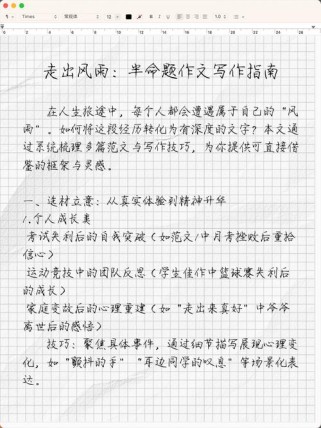 Times
常规体
12
B
I
U
1.0
0 2 4 6 8 10 12 14 16 18 20 22 24 26
走出风雨：半命题作文写作指南
在人生旅途中，每个人都会遭遇属于自己的“风
雨”。如何将这段经历转化为有深度的文字？本文通
过系统梳理多篇范文与写作技巧，为你提供可直接借
鉴的框架与灵感。
一、选材立意：从真实体验到精神升华
1.个人成长类
考试失利后的自我突破（如范文1中月考挫败后重拾
信心）
运动竞技中的团队反思（学生佳作中篮球赛失利后
的成长）
家庭变故后的心理重建（如“走出来真好”中爷爷
离世后的感悟）
技巧：聚焦具体事件，通过细节描写展现心理变
化，如“颤抖的手”“耳边同学的叹息”等场景化表
达。